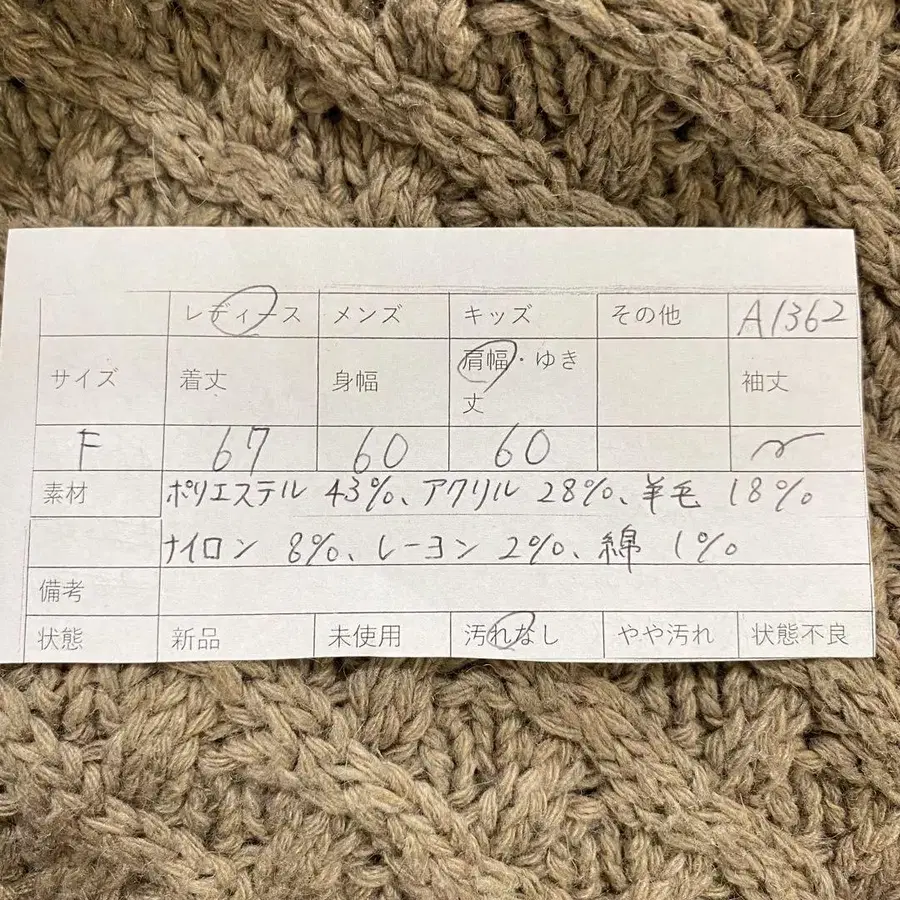 レディース メンズ キッズ その他 A1362
サイズ 着丈 身幅 肩幅・ゆき丈 袖丈
F 67 60 60
素材 ポリエステル 43%、アクリル 28%、羊毛 18%
ナイロン 8%、レーヨン 2%、綿 1%
備考
状態 新品 未使用 汚れなし やや汚れ 状態不良